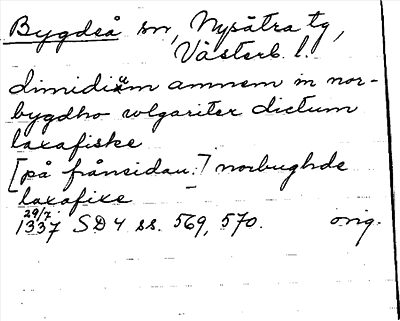 Bygdeå sn, Nysätra tg,
Västerb. l.
dimidiam amnem in nor-
bygdho wlgariter dictum
laxafiske
[på frånsidan:] norbughde
laxafixe
29/7
1337 SD 4 ss. 569, 570. orig.